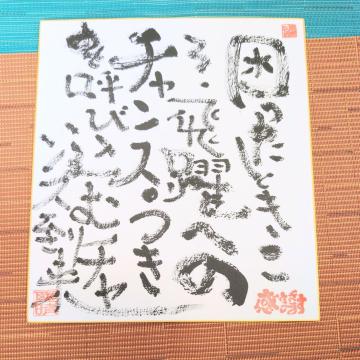 困ったときこ
そ、飛躍への
チャンス。つき
を呼びこむチャ
ンス到来
感謝